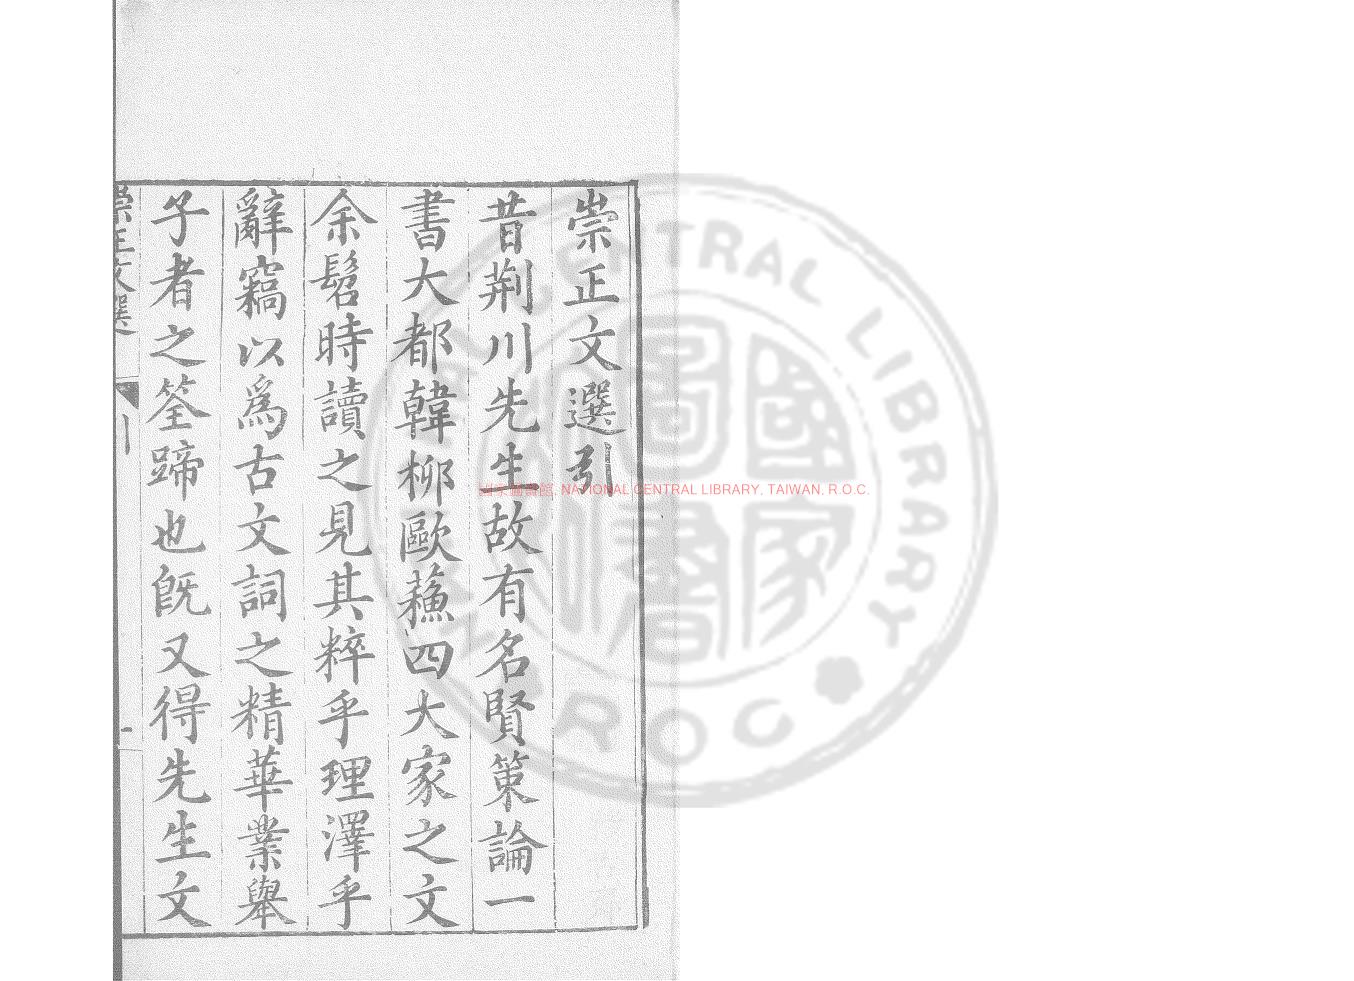 崇正文選引
昔荆川先生故有名賢策論一
書大都韓柳歐蘓四大家之文
余髫時讀之見其粹乎理澤乎
辭竊以爲古文詞之精華業舉
子者之筌蹄也旣又得先生文
崇正文選
引
一
國家圖書館, NATIONAL CENTRAL LIBRARY, TAIWAN, R.O.C.
CENTRAL LIBRARY
ROC
國家圖書